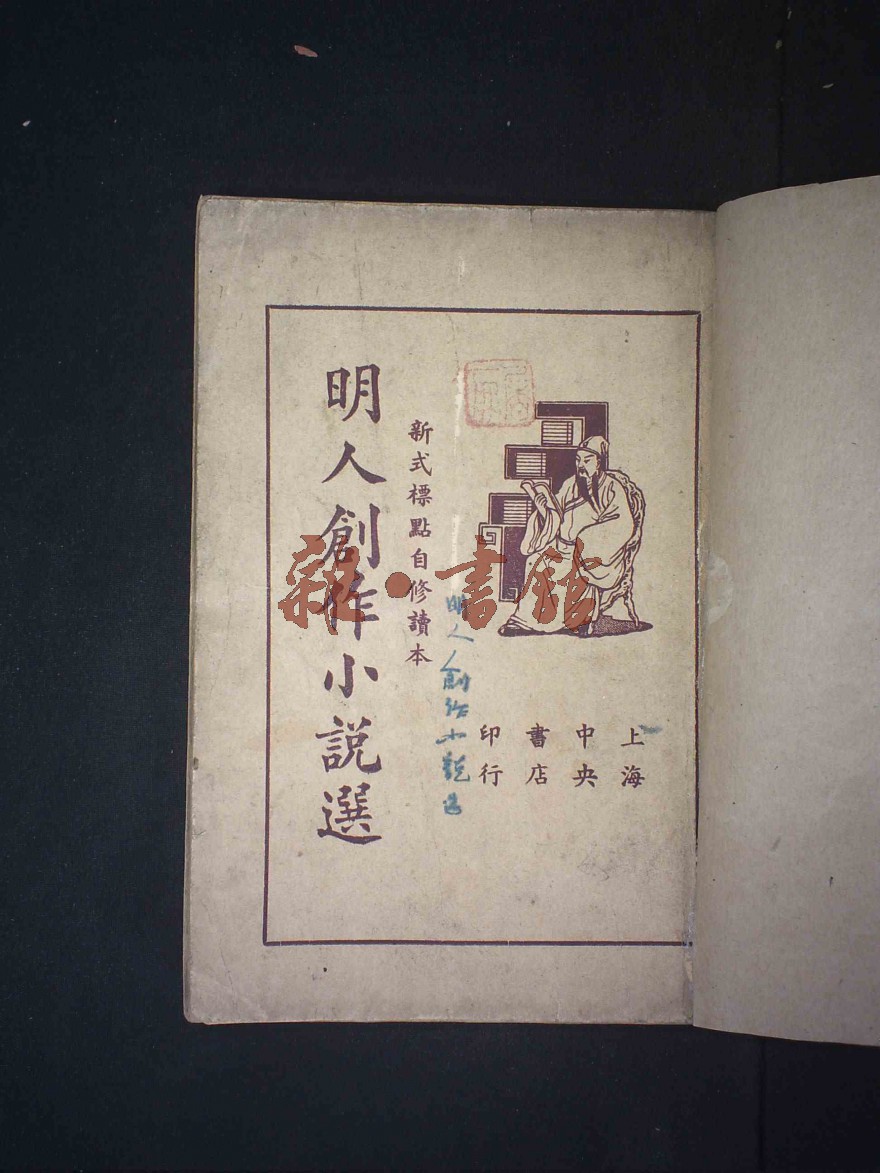 明人創作小說選
新式標點自修讀本
明人創作小説選
上海
中央
書店
印行
雜·書館